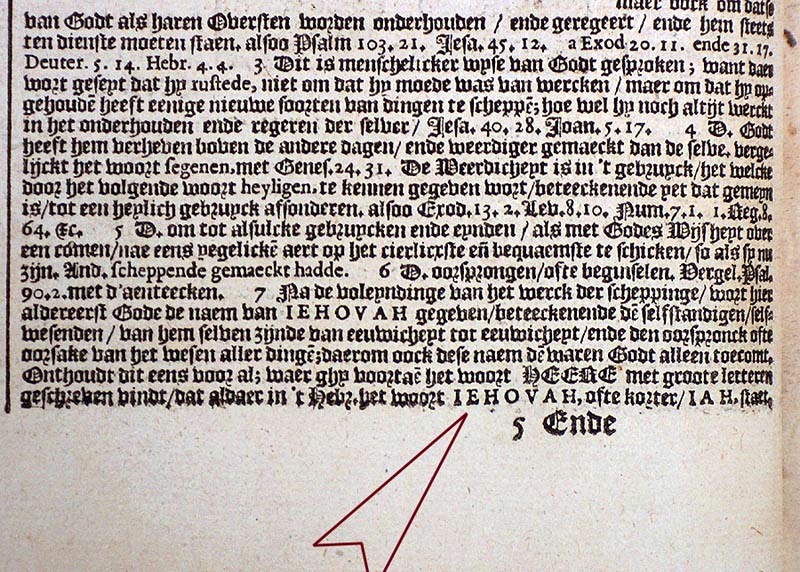 maer oock om datse
van Godt als haren Oversten worden onderhouden / ende geregeert / ende hem steets
ten dienste moeten staen. alsoo Psalm 103. 21. Jesa. 45. 12. a Exod 20. 11. ende 31. 17.
Deuter. 5. 14. Hebr. 4. 4. 3 Dit is menschelicker wyse van Godt gesproken; want daer
wort geseyt dat hy rustede, niet om dat hy moede was van wercken / maer om dat hy op-
gehoudē heeft eenige nieuwe soorten van dingen te scheppē; hoe wel hy noch altijt werckt
in het onderhouden ende regeren der selver / Jesa. 40. 28. Joan. 5. 17. 4 D. Godt
heeft hem verheven boven de andere dagen / ende weerdiger gemaeckt dan de selve. verge-
lijckt het woort segenen. met Genes. 24. 31. De Weerdicheyt is in 't gebruyck / het welcke
door het volgende woort heyligen. te kennen gegeven wort / beteeckenende yet dat gemeyn
is / tot een heylich gebruyck afsonderen. alsoo Exod. 13. 2. Lev. 8. 10. Num. 7. 1. 1. Reg. 8.
64. &c. 5 D. om tot alsulcke gebruycken ende eynden / als met Godes Wijsheyt over
een cómen / nae eens yegelickē aert op het cierlicxste eñ bequaemste te schicken / so als sy nu
zijn. And. scheppende gemaeckt hadde. 6 D. oorsprongen / ofte beginselen. Vergel. Psal.
90. 2. met d'aenteecken. 7 Na de voleyndinge van het werck der scheppinge / wort hier
aldereerst Gode de naem van IEHOVAH gegeven / beteeckenende dē selfstandigen / self-
wesenden / van hem selven zijnde van eeuwicheyt tot eeuwicheyt / ende den oorspronck ofte
oorsake van het wesen aller dingē; daerom oock dese naem dē waren Godt alleen toecomt.
Onthoudt dit eens voor al; waer ghy voortaē het woort HEERE met groote letteren
geschreven vindt / dat aldaer in 't Hebr. het woort IEHOVAH, ofte korter / IAH. staet.
5 Ende